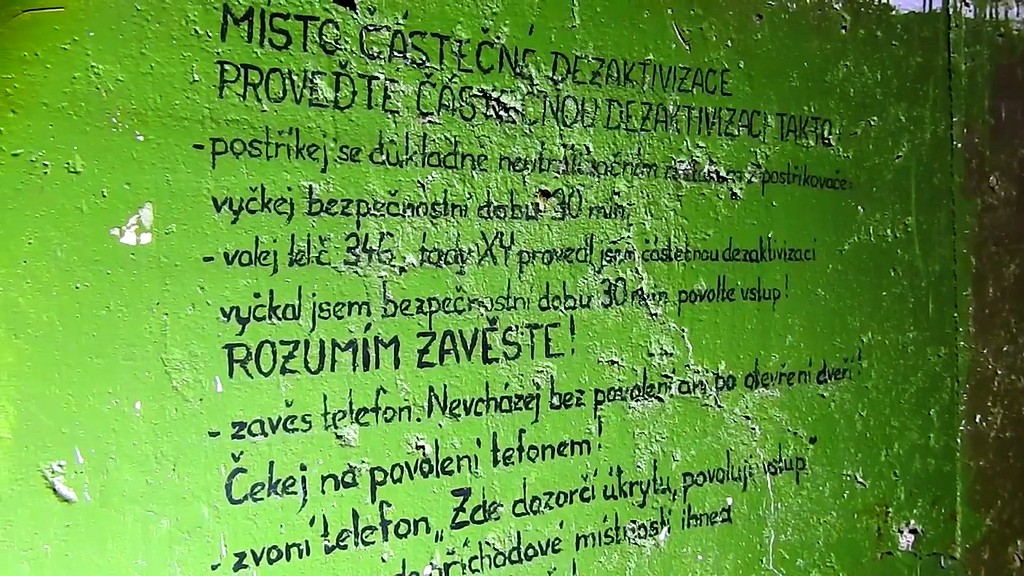 MÍSTO ČÁSTEČNÉ DEZAKTIVIZACE
PROVEĎTE ČÁSTEČNOU DEZAKTIVIZACI TAKTO:
- postříkej se důkladně z postřikovače
vyčkej bezpečnostní dobu 30 min.
- volej tel.č 346 „tady XY provedl jsem částečnou dezaktivizaci
vyčkal jsem bezpečnostní dobu 30 min povolte vstup!
ROZUMÍM ZAVĚSTE!
- zavěs telefon. Nevcházej bez povolení ani po otevření dveří!
Čekej na povolení tefonem!
- zvoní telefon „Zde dozorčí úkrytu, povoluji vstup"
do příchodové místnosti ihned